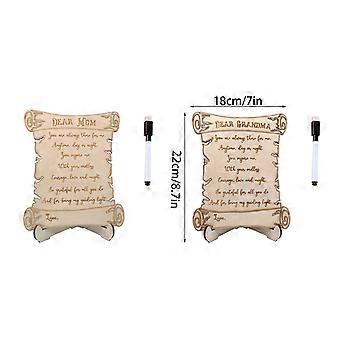 DEAR MOM
You are always there for me
Anytime, day or night
You inspire me
With your endless
Courage, love and might
So grateful for all you do
And for being my guiding light
Love,
18cm/7in
22cm/8.7in
DEAR GRANDMA
You are always there for me
Anytime, day or night
You inspire me
With your endless
Courage, love and might
So grateful for all you do
And for being my guiding light